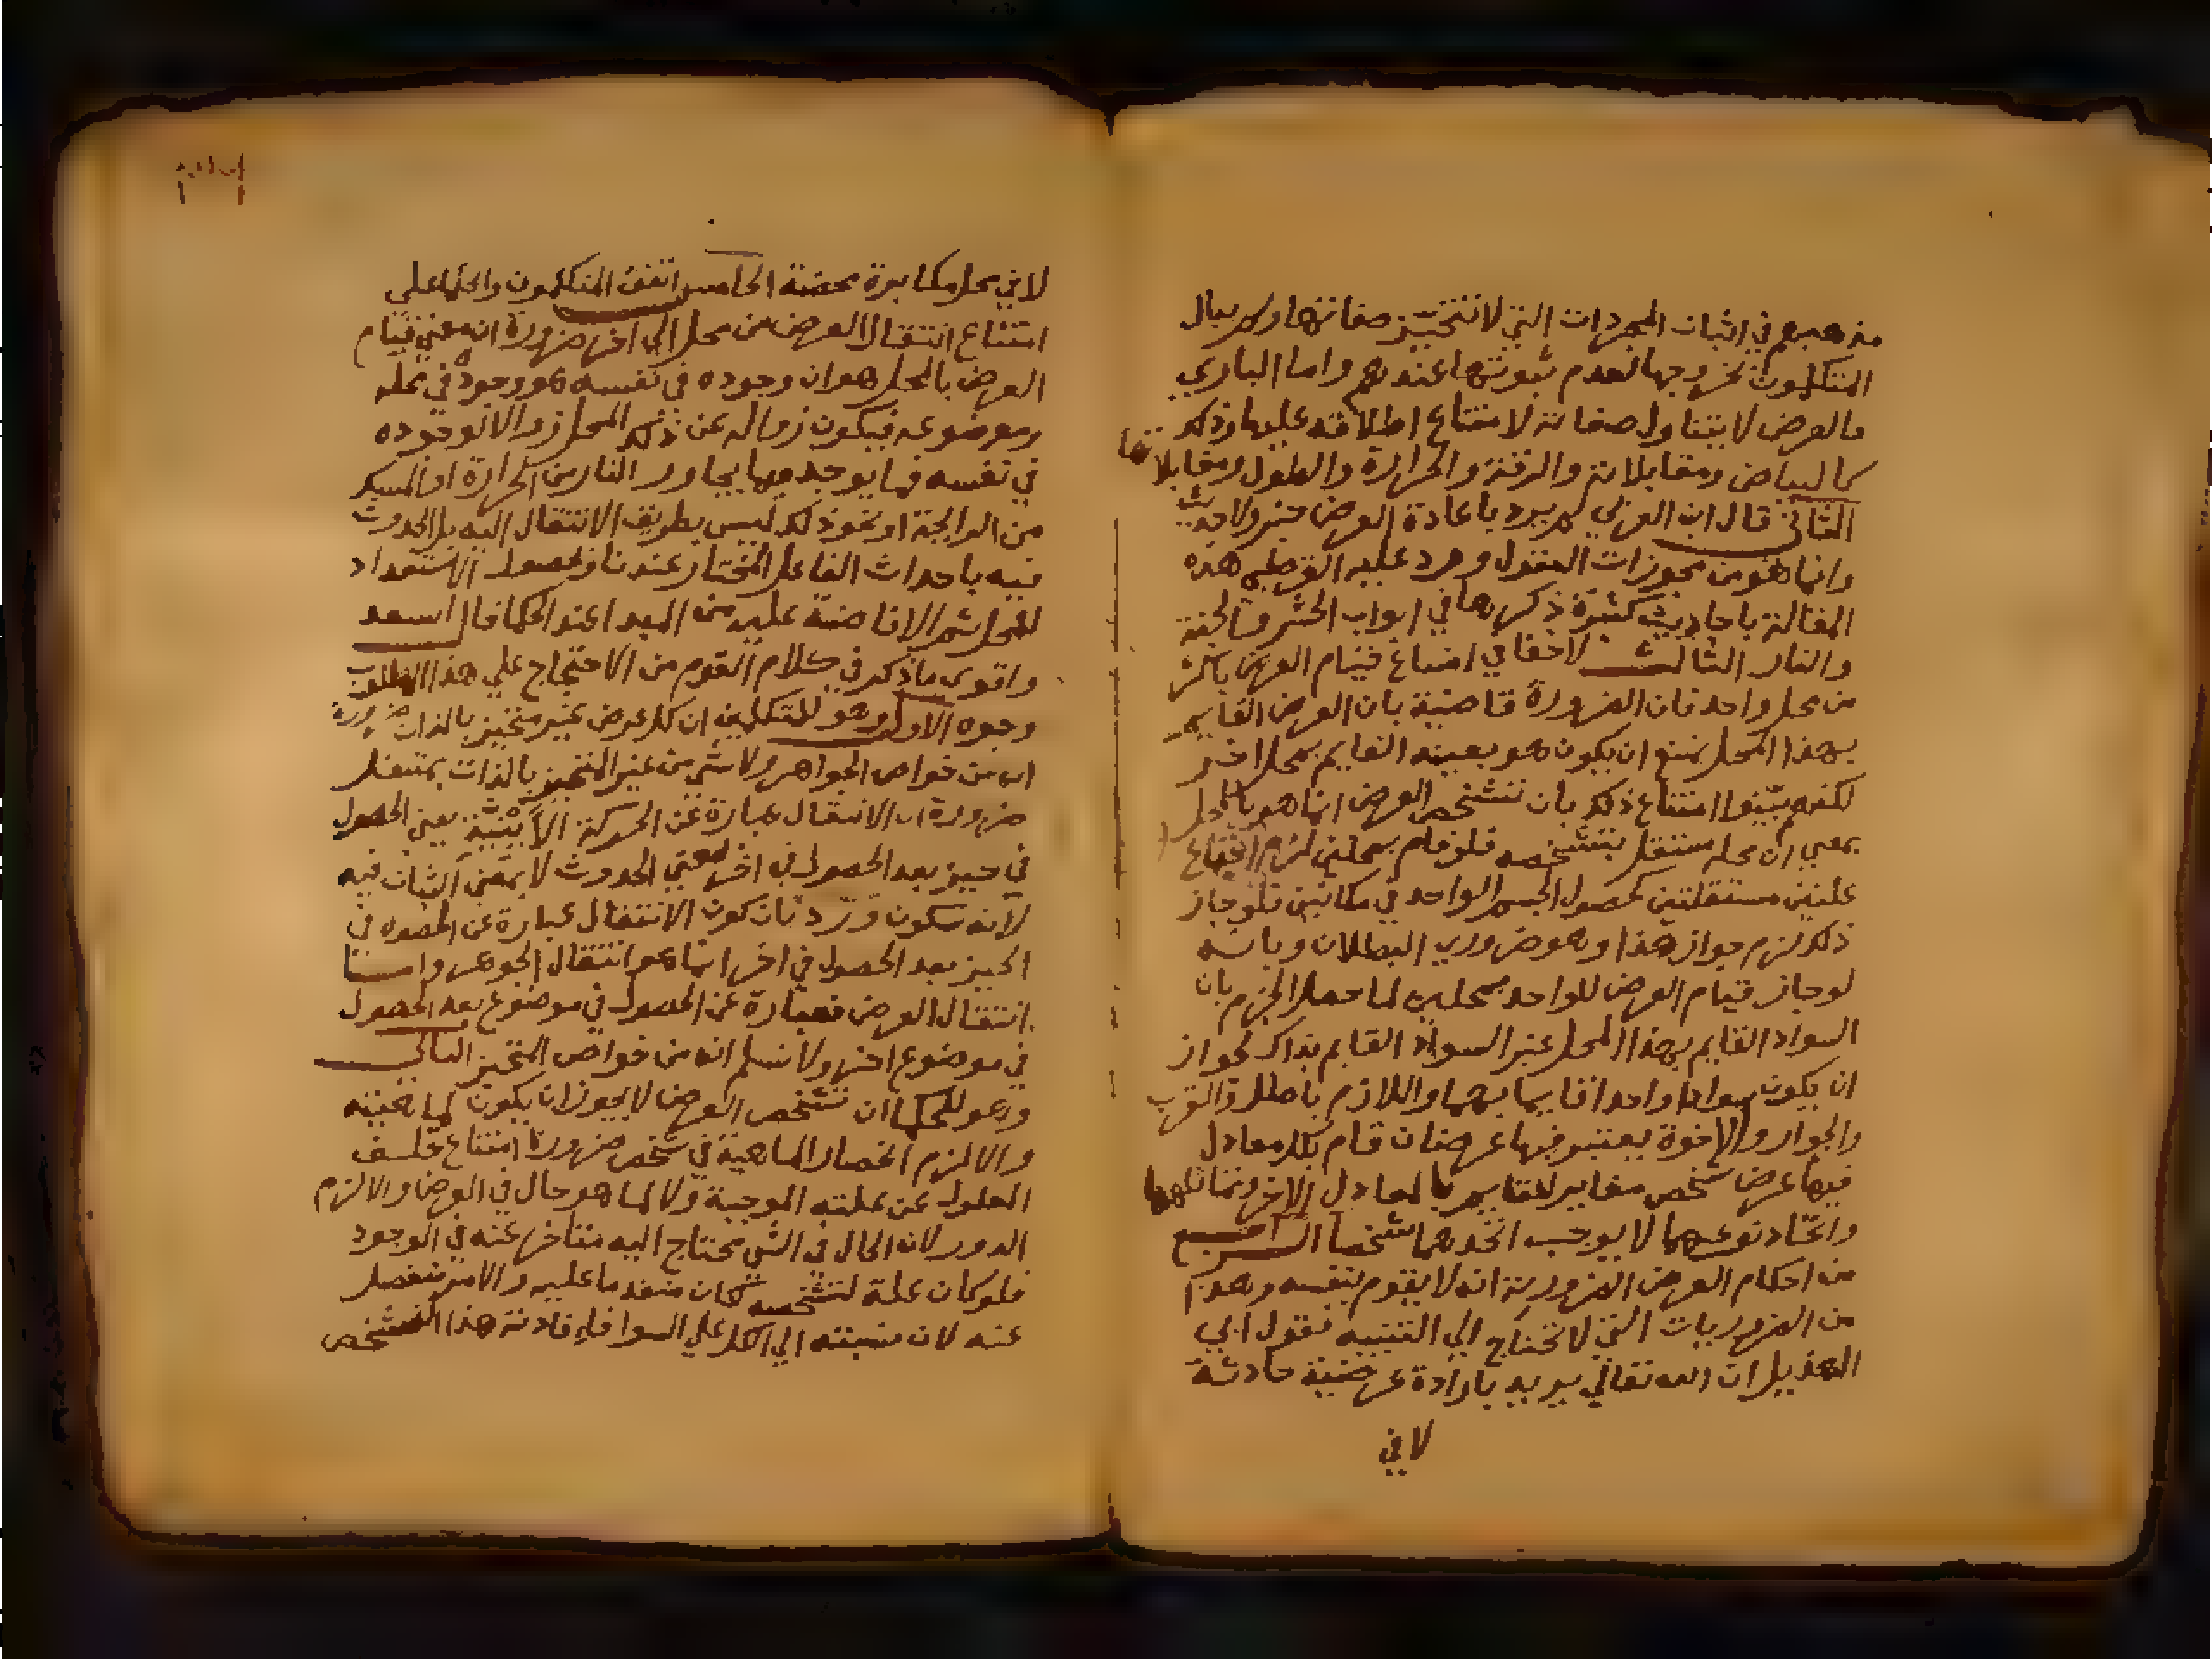 مذهبهم في اثبات المجردات التي لا تتحيز صفاتها ولم يبال
المتكلمون بخروجها لعدم ثبوتها عندهم واما الباري
فالعرض لا يتناول صفاته لامتناع اطلاقه عليها وذلك
كالبياض ومقابلاته والرقة والحرارة والطول ومقابلاتها
الثاني قال ابن العربي لم يرد باعادة العرض خبر ولا حديث
وانما هو من مجوزات العقول ورد عليه القرطبي هذه
المقالة باحاديث كثيرة ذكرها في ابواب الحشر والجنة
والنار الثالث لا خفا في امتناع قيام العرض باكثر
من محل واحد فان الضرورة قاضية بان العرض القايم
بهذا المحل يمتنع ان يكون هو بعينه القايم بمحل اخر
لكنهم بينوا امتناع ذلك بان تشخص العرض انما هو بالمحل
بمعني ان محله مستقل بتشخصه فلو قام بمحلين لزم اجتماع
علتين مستقلتين كحصول الجسم الواحد في مكانين فلو جاز
ذلك لزم جواز هذا وهو ضروري البطلان وبانه
لوجاز قيام العرض للواحد بمحلين لما حصل الجزم بان
السواد القايم بهذا المحل غير السواد القايم بذاك لجواز
ان يكون سوادا واحدا قايما بهما واللازم باطل والقرب
والجوار والاخوة يعتبر فيها عرضان قام بكل معادل
فيها عرض شخص مغاير للقايم بالمعادل الاخر وتماثلهما
واتحاد نوعهما لا يوجب اتحدهما شخصا الرابع
من احكام العرض الضرورية انه لا يقوم بنفسه وهذا
من الضروريات التي لا تحتاج الي التنبيه فقول ابي
الهذيل ان الله تعالي يريد بارادة عرضية حادثة
لا في
لا في محل مكابرة محضة الخامس اتفق المتكلمون والحكما علي
امتناع انتقال العرض من محل الي اخر ضرورة ان معني قيام
العرض بالمحل هو ان وجوده في نفسه هو وجوده في محله
وموضوعه فيكون زواله عن ذلك المحل زوالا لوجوده
في نفسه فما يوجد فيما يجاور النار من الحرارة او المسك
من الرايحة او نحو ذلك ليس بطريق الانتقال اليه بل الحدوث
فيه باحداث الفاعل المختار عندنا وبحصول الاستعداد
للمحل ثم الافاضة عليه من المبدا عند الحكما قال السعد
واقوى ما ذكر في كلام القوم من الاحتجاج علي هذا المطلوب
وجوه الاول وهو للمتكلمين ان كل عرض غير متحيز بالذات ضرورة
ان من خواص الجواهر ولا شي من غير المتحيز بالذات بمنتقل
ضرورة ان الانتقال عبارة عن الحركة الاينية يعني الحصول
في حيز بعد الحصول في اخر بمعني الحدوث لا بمعني الثبات فيه
لانه سكون ورد بان كون الانتقال عبارة عن الحصول في
الحيز بعد الحصول في اخر انما هو انتقال الجوهر واما
انتقال العرض فعبارة عن الحصول في موضوع بعد الحصول
في موضوع اخر ولا نسلم انه من خواص المتحيز الثاني
وهو للحكما ان تشخص العرض لا يجوز ان يكون لماهيته
والا لزم انحصار الماهية في شخص ضرورة امتناع تخلف
المعلول عن علته الموجبة ولا لما هو حال في العرض والا لزم
الدور لان الحال في الشي محتاج اليه متاخر عنه في الوجود
فلو كان علة لتشخصه لكان متقدما عليه ولا لامر منفصل
عنه لان نسبته الي الكل علي السوا فافادته هذا التشخص